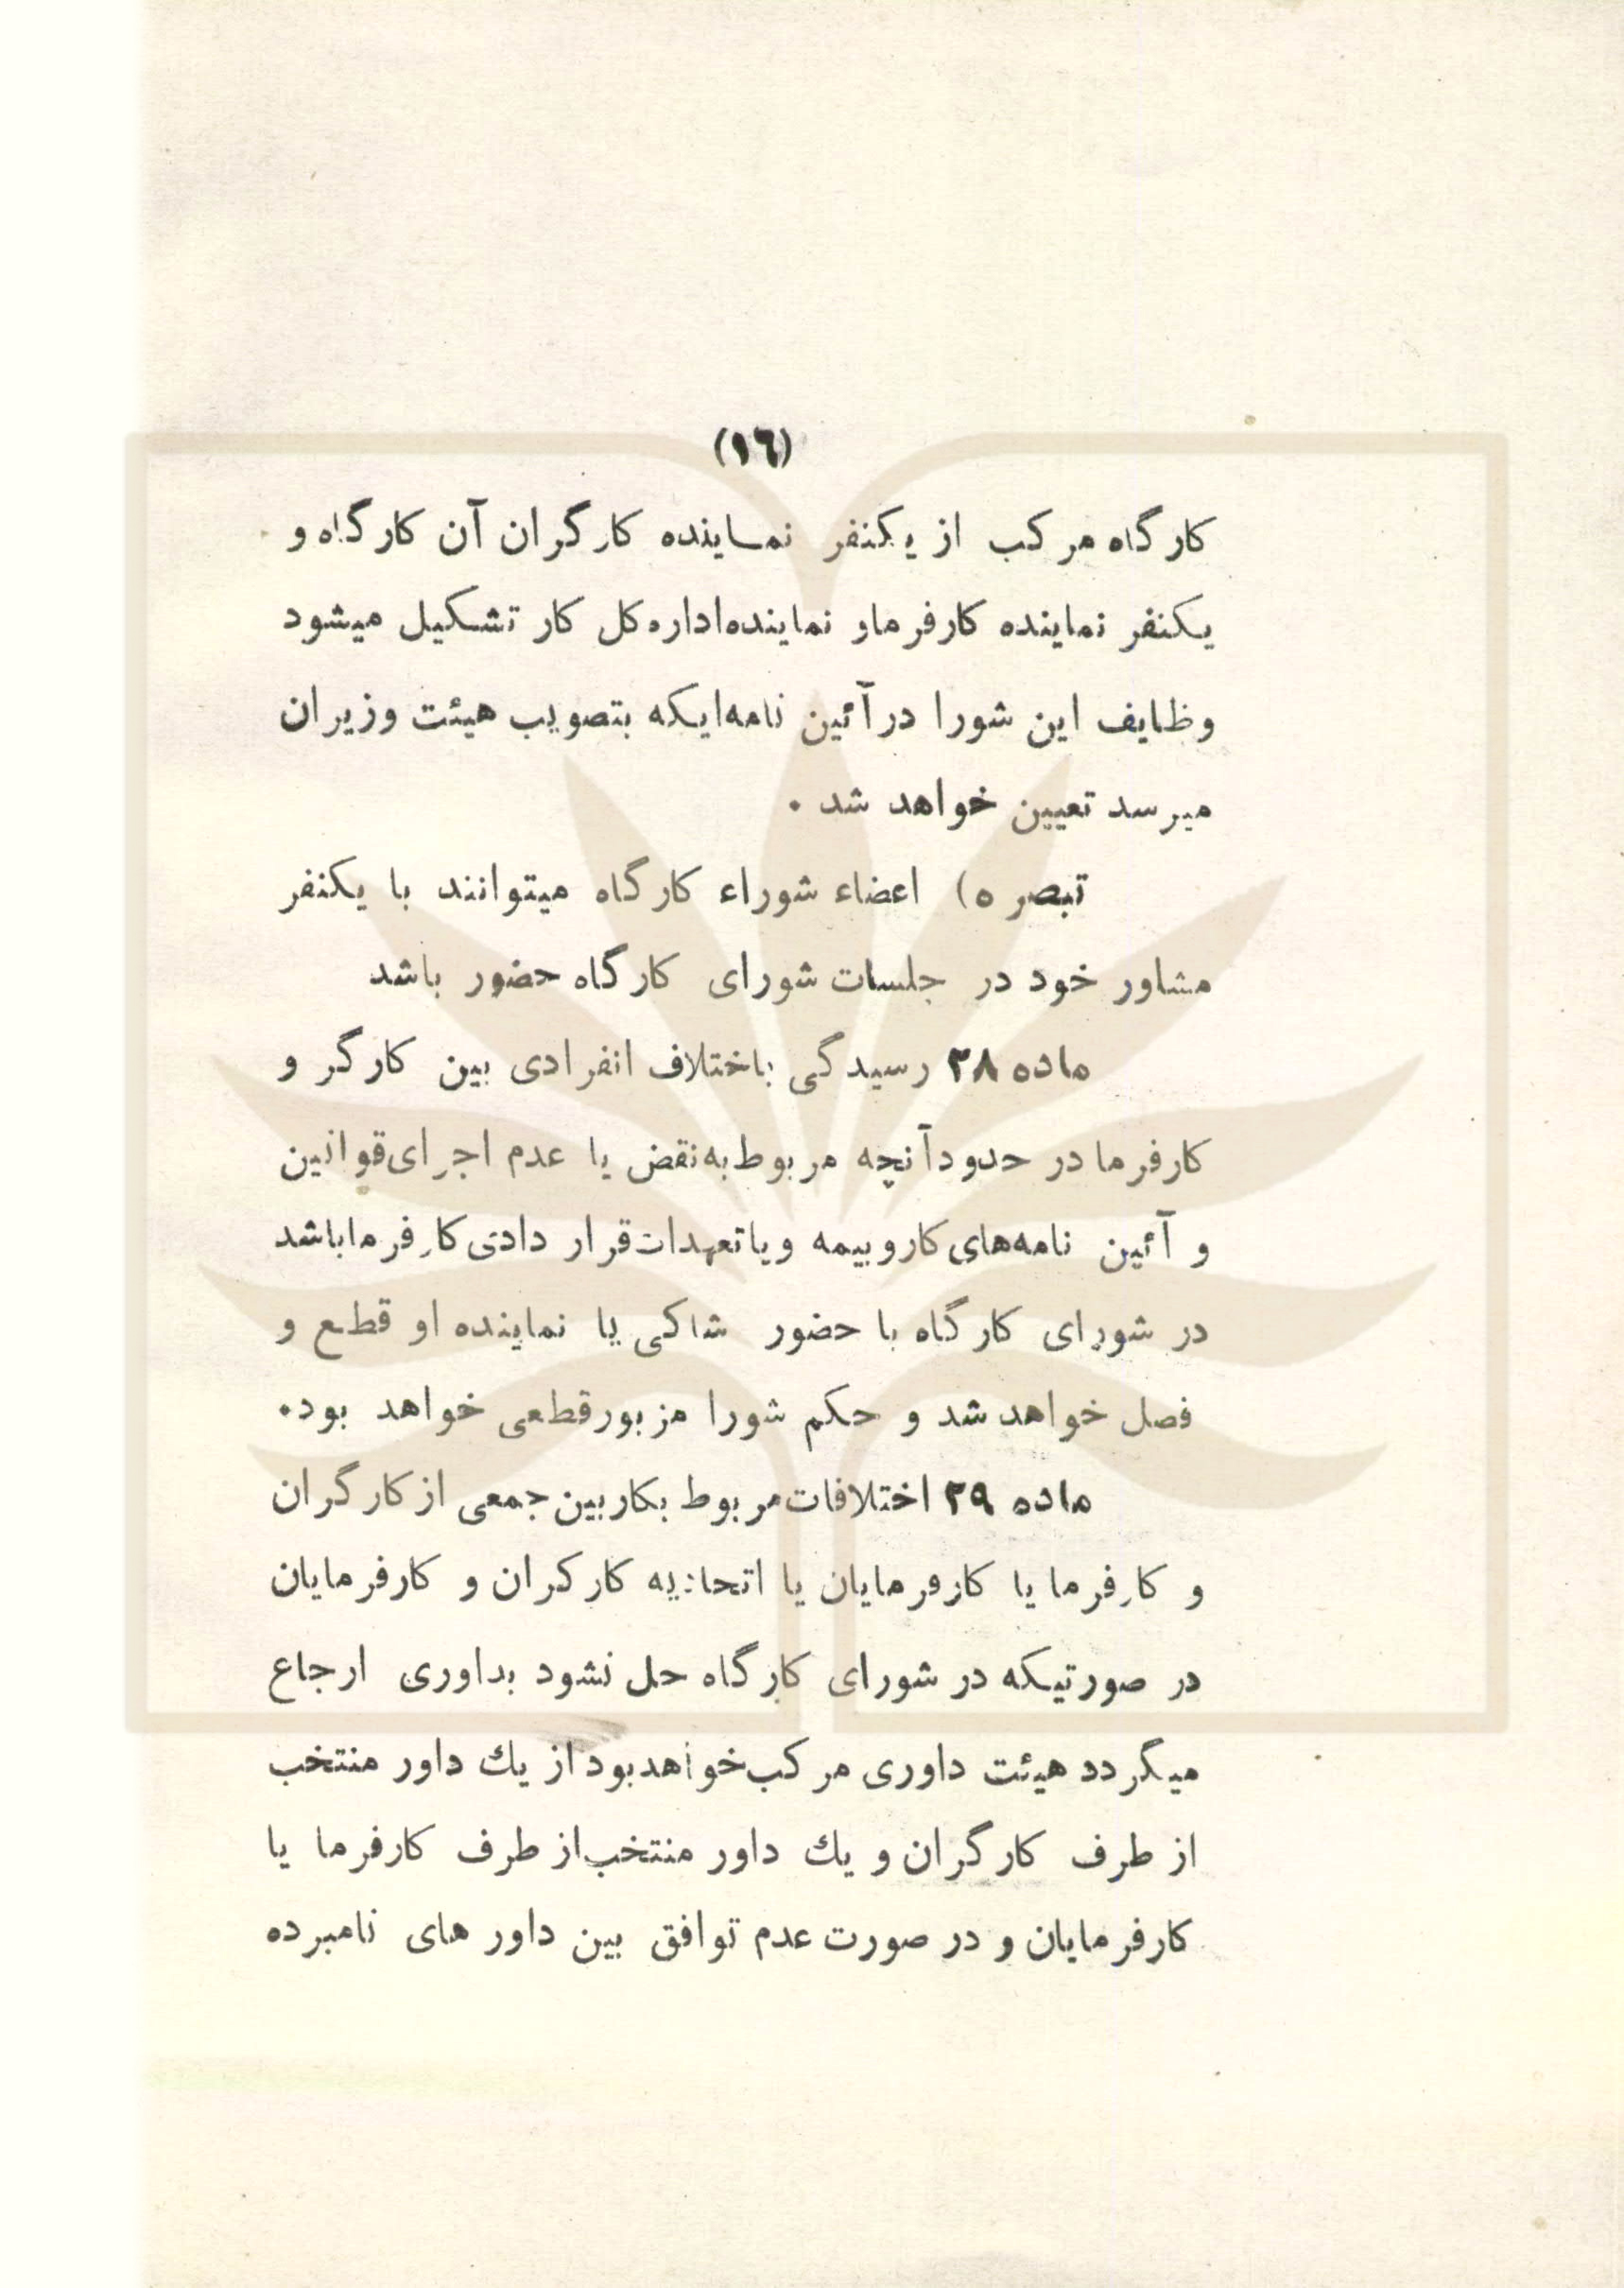 (١٦)
کارگاه مرکب از یکنفر نماینده کارگران آن کارگاه و
یکنفر نماینده کارفرماو نماینده‌اداره‌کل کار تشکیل میشود
وظایف این شورا درآئین نامه‌ایکه بتصویب هیئت وزیران
میرسد تعیین خواهد شد .
تبصره) اعضاء شوراء کارگاه میتوانند با یکنفر
مشاور خود در جلسات شورای کارگاه حضور باشد
ماده ۲۸ رسیدگی باختلاف انفرادی بین کارگر و
کارفرما در حدودآنچه مربوط به‌نقض یا عدم اجرای‌قوانین
و آئین نامه‌های‌کاروبیمه ویاتعهدات‌قرار دادی‌کارفرماباشد
در شورای کارگاه با حضور شاکی یا نماینده او قطع و
فصل خواهد شد و حکم شورا مزبورقطعی خواهد بود.
ماده ۲۹ اختلافات‌مربوط بکاربین‌جمعی ازکارگران
و کارفرما یا کارفرمایان یا اتحادیه کارکران و کارفرمایان
در صورتیکه در شورای کارگاه حل نشود بداوری ارجاع
میگردد هیئت داوری مرکب‌خواهدبوداز یك داور منتخب
از طرف کارگران و یك داور منتخب‌از طرف کارفرما یا
کارفرمایان و در صورت عدم توافق بین داور های نامبرده